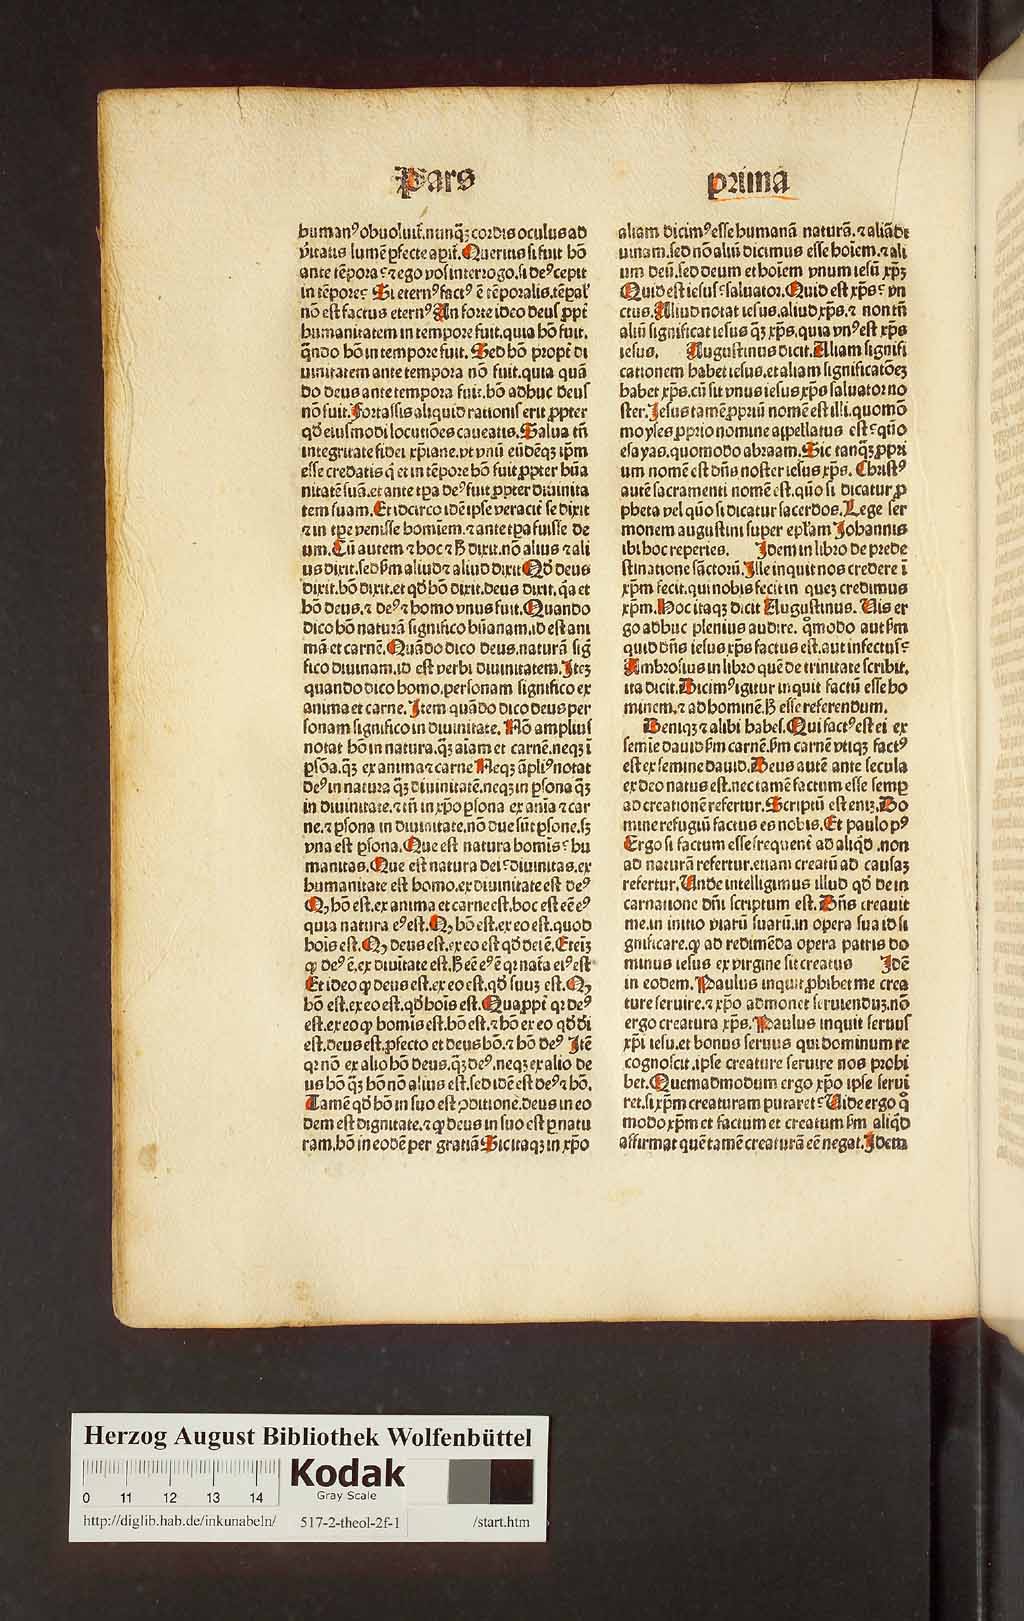 Pars prima
humanꝰ obuoluit. nunq̃ꝫ cordis oculus ad
v̾itatis lumē ꝑfecte aꝑit. Queritis si fuit hō
ante tēpora ⁊ ego vos interrogo. si deꝰ cepit
in tēpore? Si eternꝰ factꝰ ē tēporalis. tēpal'
nō est factus eternꝰ An forte ideo deus ꝓpt̾
humanitatem in tempore fuit. quia hō fuit.
q̄ndo hō in tempore fuit. Sed hō propt̾ di
uinitatem ante tempora nō fuit. quia quā
do deus ante tempora fuit. hō adhuc deus
nō fuit. Fortassis aliquid rationis erit ꝓpter
qd̄ eiusmodi locutiōes caueatis. Salua tñ
integritate fidei xp̄iane. vt vnū eūdēqꝫ ip̄m
esse credatis q̇ et in tēpore hō fuit ꝓpter hūa
nitatē suā. et ante tp̄a deꝰ fuit ꝓpter diuinita
tem suam. Et idcirco idē ipse veracit̾ se dixit
⁊ in tp̄e venisse homīem. ⁊ ante tp̄a fuisse de
um. Cū autem ⁊ hoc ⁊ ꝧ dixit. nō alius ⁊ ali
us dixit. sed ẜm aliud ⁊ aliud dixit Qd̄ deus
dixit. hō dixit. et qd̄ hō dixit. deus dixit. q̇a et
hō deus. ⁊ deꝰ ⁊ homo vnus fuit. Quando
dico hō naturā significo hūanam. id est ani
mā et carnē. Quādo dico deus. naturā sig̃
fico diuinam. id est verbi diuinitatem. Iteꝫ
quando dico homo. personam significo ex
anima et carne. Item quādo dico deus per
sonam significo in diuinitate. Nō amplius
notat hō in natura. q̄ꝫ aīam et carnē. neqꝫ ī
ꝑsōa. q̄ꝫ ex anima ⁊ carne Neqꝫ āpliꝰ notat
deꝰ in natura q̄ꝫ diuinitatē. neqꝫ in ꝑsona q̄ꝫ
in diuinitate. ⁊ tñ in xp̄o ꝑsona ex aīa ⁊ car
ne. ⁊ ꝑsona in diuinitate. nō due sūt ꝑsone. sꝫ
vna est ꝑsona. Que est natura homīs? hu
manitas. Que est natura dei? diuinitas. ex
humanitate est homo. ex diuinitate est deꝰ
Qꝫ hō est. ex anima et carne est. hoc est eē eꝰ
quia natura eꝰ est. Qꝫ hō est. ex eo est. quod
hoīs est. Qꝫ deus est. ex eo est qd̄ dei ē. Eteīꝫ
ꝙ deꝰ ē. ex diuītate est. ꝧ eē eꝰ ē qꝛ nat̄a eiꝰ est
Et ideo ꝙ deus est. ex eo est. qd̄ suuꝫ est. Qꝫ
hō est. ex eo est. qd̄ hoīs est. Quappt̾ qꝛ deꝰ
est. ex eo ꝙ homīs est. hō est. ⁊ hō ex eo qd̄ dī
est. deus est. ꝓfecto et deus hō. ⁊ hō deꝰ Itē
qꝛ nō ex alio hō deus. q̄ꝫ deꝰ. neqꝫ ex alio de
us hō q̄ꝫ hō nō alius est. sed idē est deꝰ ⁊ hō.
Tamē qd̄ hō in suo est ꝯditione. deus in eo
dem est dignitate. ⁊ ꝙ deus in suo est ꝑ natu
ram. hō in eodē per gratiā Sic itaqꝫ in xp̄o
aliam dicimꝰ esse humanā naturā. ⁊ aliā di
uinam. sed nō aliū dicimus esse hoīem. ⁊ ali
um deū. sed deum et hoīem vnum iesū xp̄ꝫ
Quid est iesus? saluator. Quid est xp̄s? vn
ctus. Aliud notat iesus. aliud xp̄s. ⁊ non tñ
aliū significat iesus q̄ꝫ xp̄s. quia vnꝰ est xp̄s
iesus. Augustinus dicit. Aliam signifi
cationem habet iesus. et aliam significatōeꝫ
habet xp̄s. cū sit vnus iesus xp̄s saluator no
ster. Iesus tamē ꝓpriū nomē est illi. quomō
moyses ꝓprio nomine appellatus est? quō
esayas. quomodo abraam. Sic tanq̄ꝫ ꝓpri
um nomē est dn̄s noster iesus xp̄s. Christꝰ
autē sacramenti nomē est. quō si dicatur ꝓ
pheta vel quō si dicatur sacerdos. Lege ser
monem augustini super ep̄lam Johannis
ibi hoc reperies. Idem in libro de prede
stinatione sāctoꝝ. Ille inquit nos credere ī
xp̄m fecit. qui nobis fecit in queꝫ credimus
xp̄m. Hoc itaqꝫ dicit Augustinus. Uis er
go adhuc plenius audire. q̊modo aut ẜm
quid dn̄s iesus xp̄s factus est. aut infectus?
Ambrosius in libro quē de trinitate scribit.
ita dicit. Dicimꝰ igitur inquit factū esse ho
minem. ⁊ ad hominē ꝧ esse referendum.
Deniqꝫ ⁊ alibi habes. Qui factꝰ est ei ex
semīe dauid ẜm carnē. ẜm carnē vtiqꝫ factꝰ
est ex semine dauid. Deus autē ante secula
ex deo natus est. nec tamē factum esse semꝑ
ad creationē refertur. Scriptū est eniꝫ. Do
mine refugiū factus es nobis. Et paulo pꝰ
Ergo si factum esse frequent̾ ad aliqd̄. non
ad naturā refertur. etiam creatū ad causaꝫ
refertur. Unde intelligimus illud qd̄ de in
carnatione dn̄i scriptum est. Dn̄s creauit
me. in initio viarū suarū. in opera sua id si
gnificare. ꝙ ad redimēda opera patris do
minus iesus ex virgine sit creatus Idē
in eodem. Paulus inquit ꝓhibet me crea
ture seruire. ⁊ xp̄o admonet seruienduꝫ. nō
ergo creatura xp̄s. Paulus inquit seruus
xp̄i iesu. et bonus seruus qui dominum re
cognoscit. ipse creature seruire nos prohi
bet. Quemadmodum ergo xp̄o ipse serui
ret. si xp̄m creaturam putaret? Uide ergo q̊
modo xp̄m et factum et creatum ẜm aliqd̄
affirmat quē tamē creaturā eē negat. Idem
Herzog August Bibliothek Wolfenbüttel
Kodak
Gray Scale
0 11 12 13 14
http://diglib.hab.de/inkunabeln/ 517-2-theol-2f-1 /start.htm